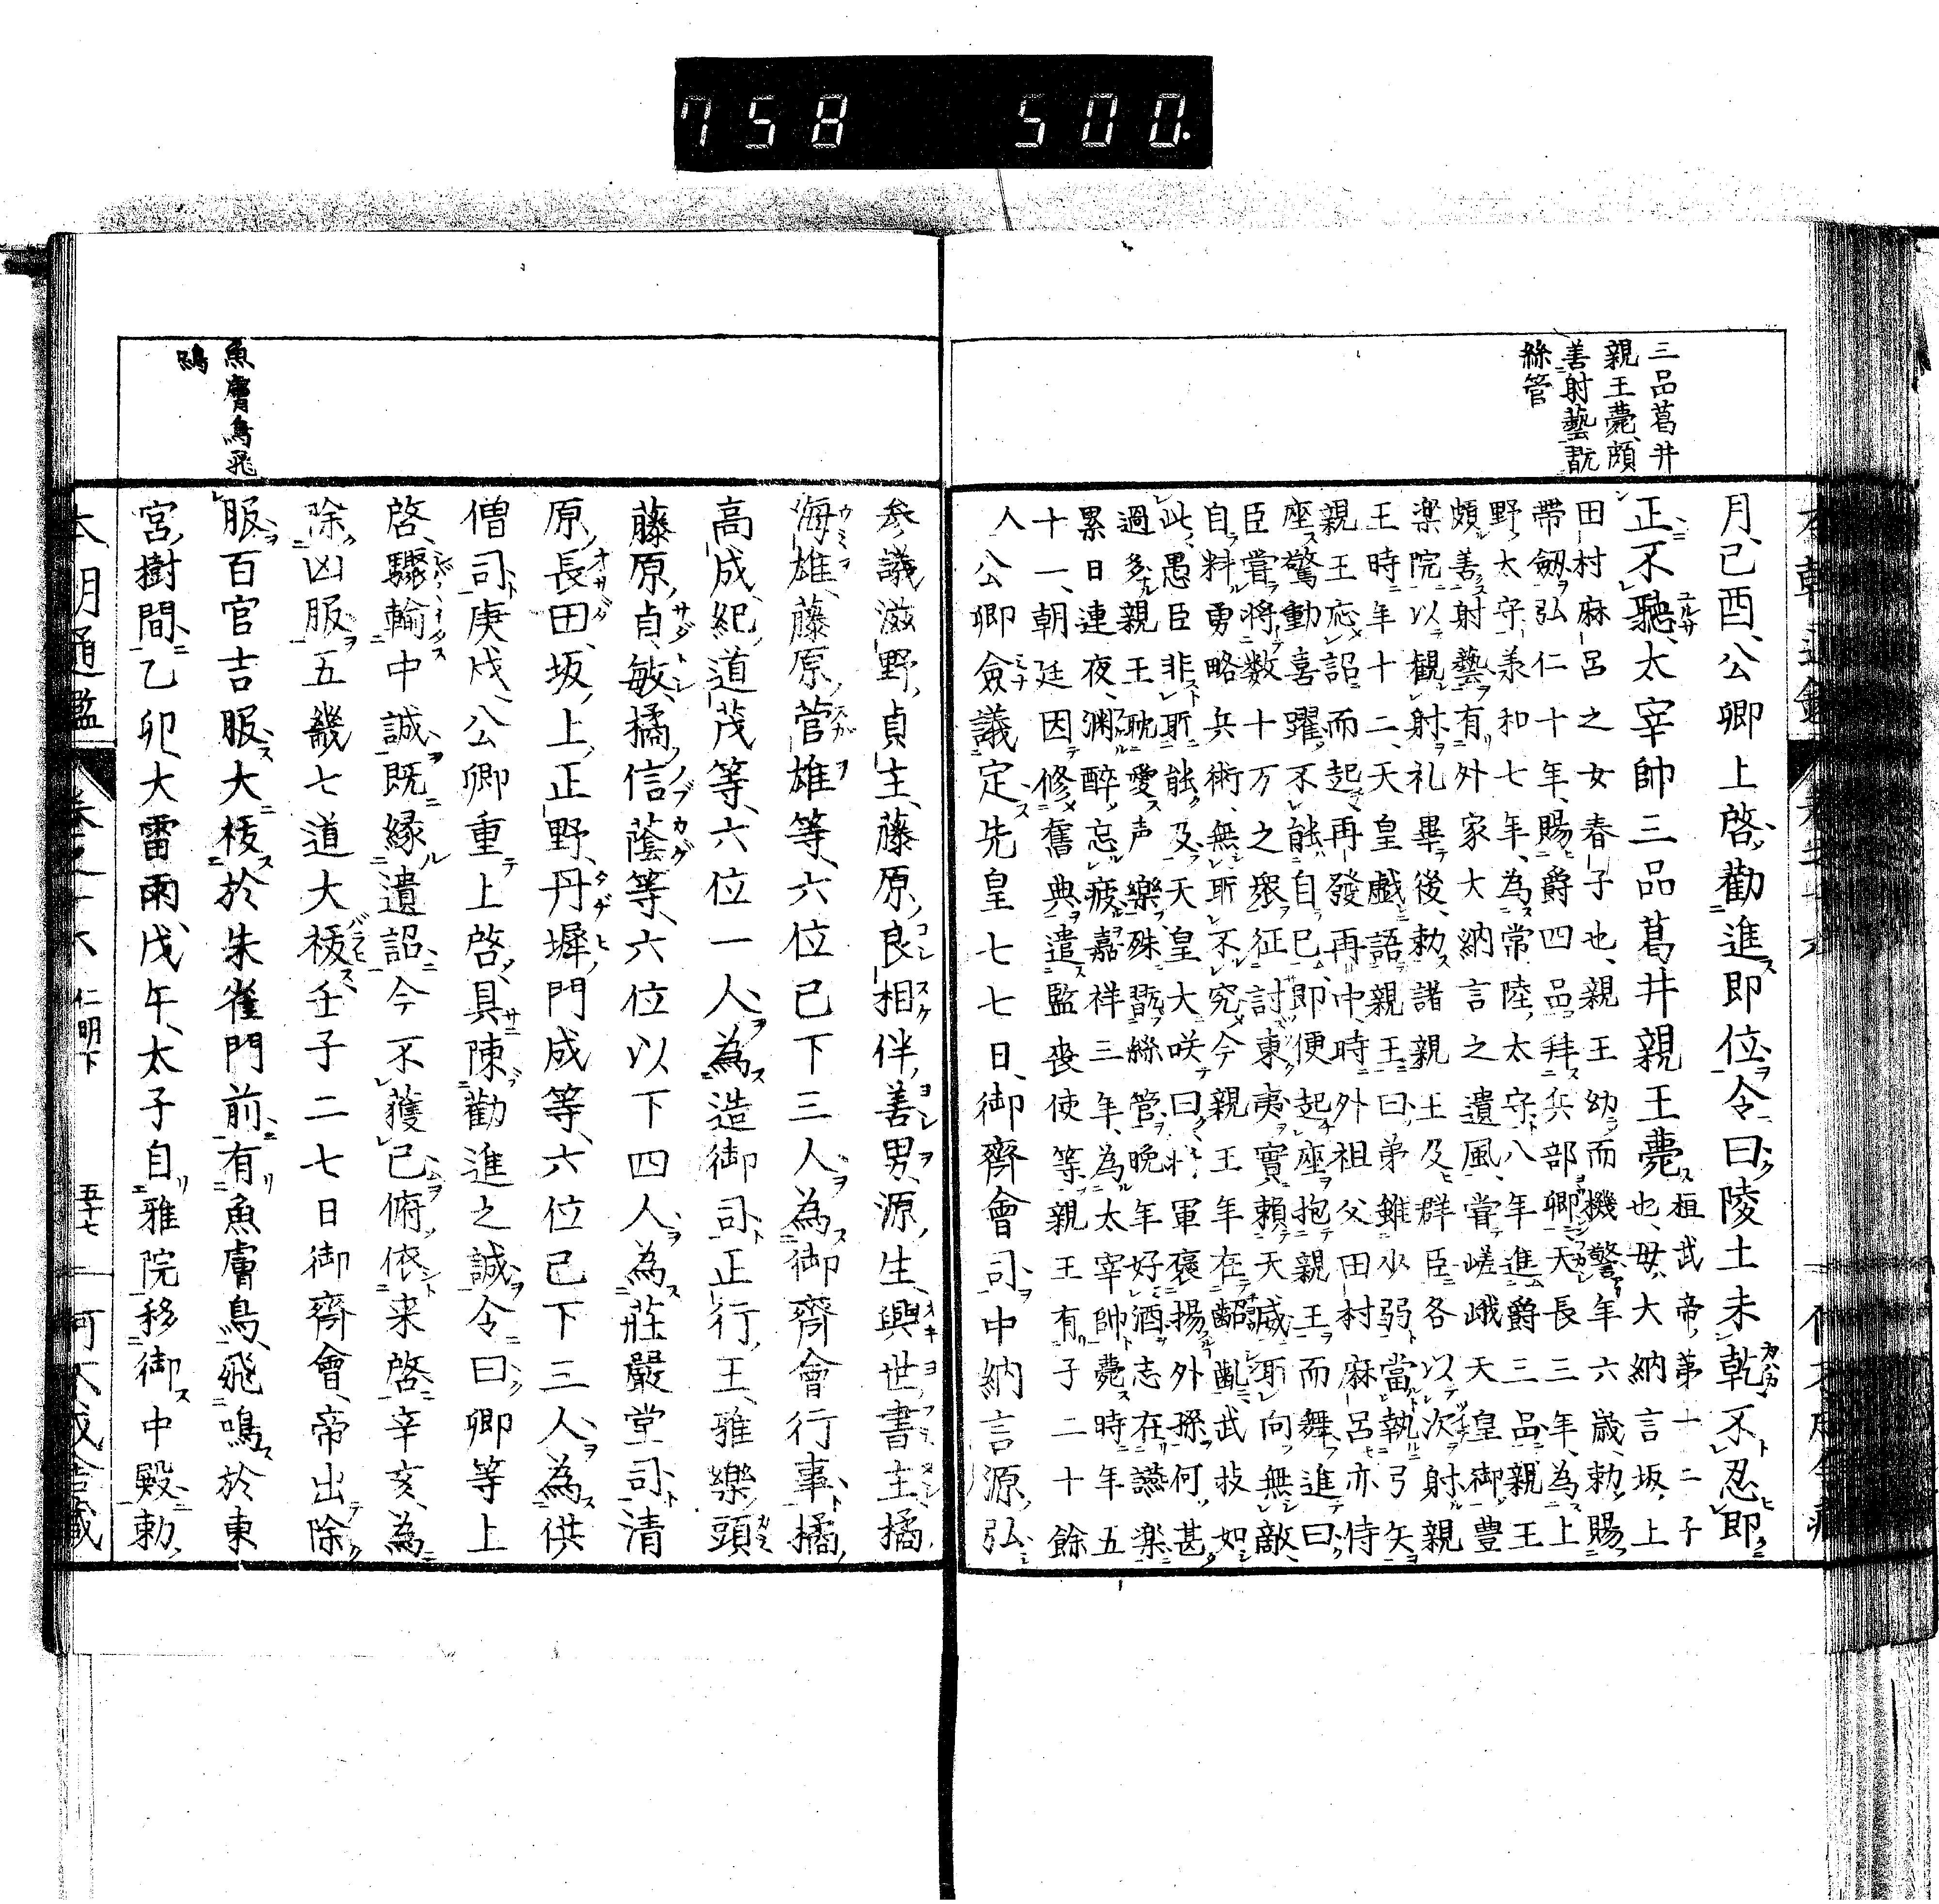 758 500.
三品葛井
親王薨頗
善射藝翫
絲管
月己酉公卿上啓勸進即位令曰陵土未乾不忍即
正不聽太宰帥三品葛井親王薨桓武帝第十二子
也母大納言坂上
田村麻呂之女春子也親王幼而機警年六歳勅賜
帶劔弘仁十年賜爵四品拜兵部卿天長三年為上
野太守承和七年為常陸太守八年進爵三品親王
頗善射藝有外家大納言之遺風嘗嵯峨天皇御豊
楽院以観射礼畢後勅諸親王及群臣各以次射親
王時年十二天皇戯語親王曰弟雖少弱當執弓矢
親王応詔而起再發再中時外祖父田村麻呂亦侍
座驚動喜躍不能自已即便起座抱親王而舞進曰
臣嘗将数十万之衆征討東夷實頼天威所向無敵
自料勇略兵術無所不究今親王年在齠齔武技如
此愚臣非所能及天皇大咲曰将軍褒揚外孫何甚
過多親王耽愛声樂殊翫絲管晩年好酒志在讌楽
累日連夜渊醉忘疲嘉祥三年為太宰帥薨時年五
十一朝廷因修舊典遣監喪使等親王有子二十餘
人公卿僉議定先皇七七日御齊會司中納言源弘
参議滋野貞主藤原良相伴善男源生興世書主橘
海雄藤原菅雄等六位已下三人為御齊會行事橘
高成紀道茂等六位一人為造御司正行王雅樂頭
藤原貞敏橘信蔭等六位以下四人為莊嚴堂司清
原長田坂上正野丹墀門成等六位已下三人為供
僧司庚戌公卿重上啓具陳勸進之誠令曰卿等上
啓驟輸中誠既縁遺詔今不獲已俯依来啓辛亥為
除凶服五畿七道大祓壬子二七日御齊會帝出除
服百官吉服大祓於朱雀門前有魚膚鳥飛鳴於東
宮樹間乙卯大雷雨戊午太子自雅院移御中殿勅
魚膚鳥飛
鳴
本朝通鑑 卷之十六 仁明下 五十七